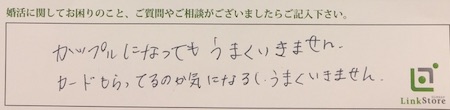 婚活に関してお困りのこと、ご質問やご相談がございましたらご記入下さい。
カップルになっても うまくいきません。
カードもらってるのか気になるし、うまくいきません。
LinkStore